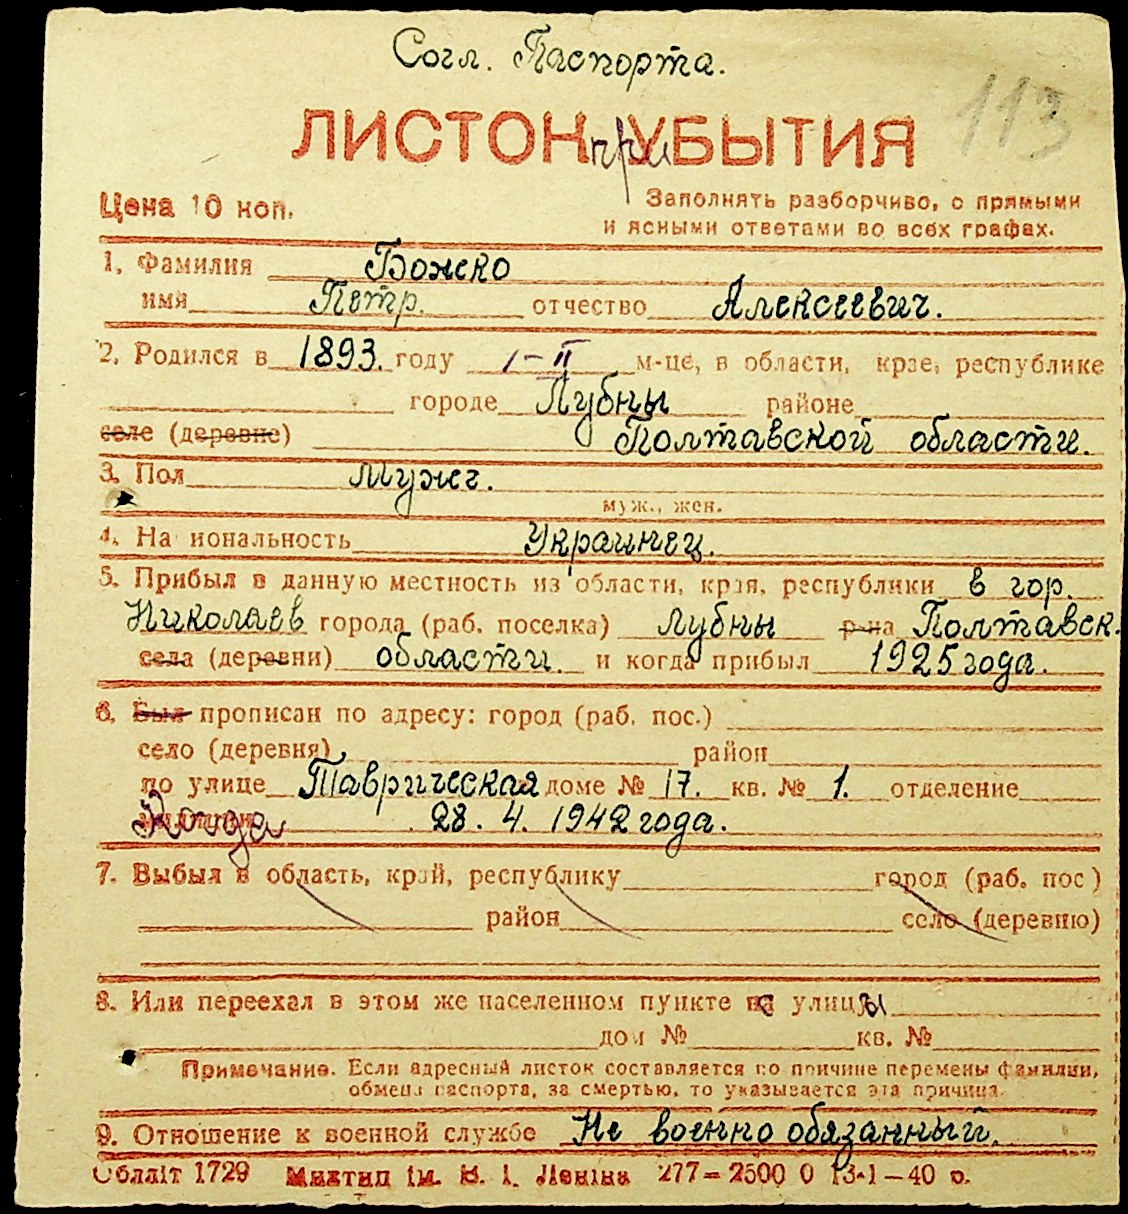 Согл. Паспорта.
113
ЛИСТОК при УБЫТИЯ
Цена 10 коп.
Заполнять разборчиво, с прямыми
и ясными ответами во всех графах.
1. Фамилия Божко
имя Петр. отчество Алексеевич.
2. Родился в 1893. году 1-II м-це, в области, крае, республике
городе Лубны районе
селе (деревне) Полтавской области.
3. Пол Мужс.
муж., жен.
4. На иональность Украинец.
5. Прибыл в данную местность из области, края, республики в гор.
Николаев города (раб. поселка) Лубны р-на Полтавск.
села (деревни) области. и когда прибыл 1925 года.
6. Был прописан по адресу: город (раб. пос.)
село (деревня) район
по улице Таврическая доме № 17. кв. № 1. отделение
милиции Когда 28. 4. 1942 года.
7. Выбыл в область, край, республику город (раб. пос)
район село (деревню)
8. Или переехал в этом же населенном пункте с улицы
дом № кв. №
Примечание. Если адресный листок составляется по причине перемены фамилии,
обмена паспорта, за смертью, то указывается эта причина.
9. Отношение к военной службе Не военно обязанный.
Обллiт 1729 Миктип iм. В. I. Ленiна 277=2500 0 13-1-40 р.